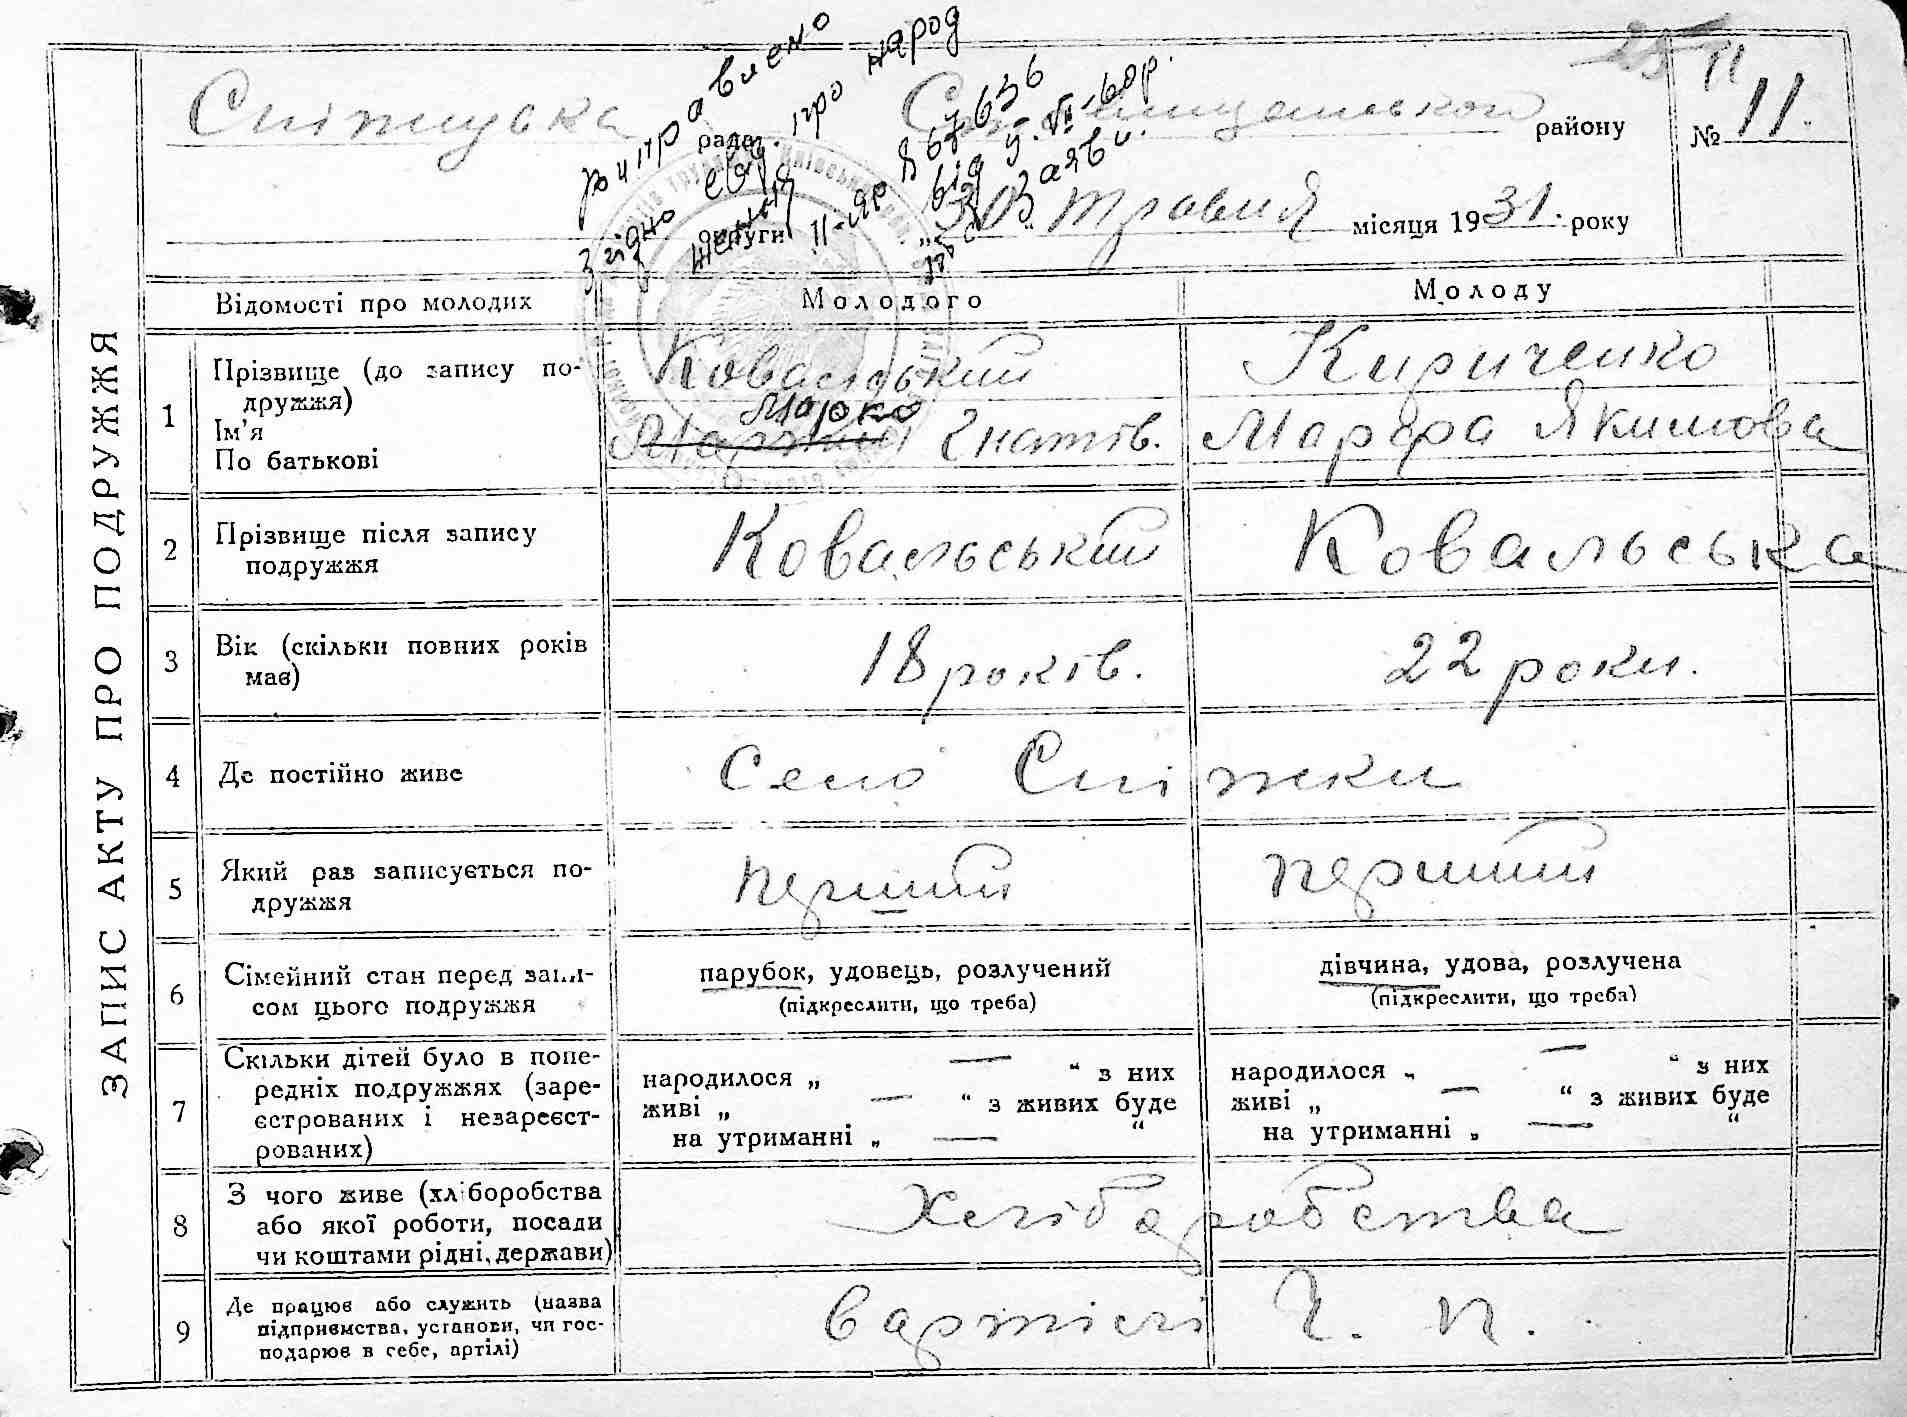 ЗАПИС АКТУ ПРО ПОДРУЖЖЯ
виправлено
Згідно свід. про народ
ження II-ЯР № 867636
від 9. VII-60р.
заяви.
25 II
Сніжнська рада
району
№ 11.
округи „30“ травня місяця 1931. року
Відомості про молодих
Молодого
Молоду
1
Прізвище (до запису по-
дружжя)
Ім’я
По батькові
Ковальський
Марко
Гнатів.
Кириченко
Марфа Якимова
2
Прізвище після запису
подружжя
Ковальський
Ковальська
3
Вік (скільки повних років
має)
18 років.
22 роки.
4
Де постійно живе
Село Сніжки
5
Який раз записується по-
дружжя
перший
перший
6
Сімейний стан перед запи-
сом цього подружжя
парубок, удовець, розлучений
(підкреслити, що треба)
дівчина, удова, розлучена
(підкреслити, що треба)
7
Скільки дітей було в попе-
редніх подружжях (заре-
єстрованих і незареєст-
рованих)
народилося „ — “ з них
живі „ — “ з живих буде
на утриманні „ — “
народилося „ — “ з них
живі „ — “ з живих буде
на утриманні „ — “
8
З чого живе (хліборобства
або якої роботи, посади
чи коштами рідні, держави)
Хліборобства
9
Де працює або служить (назва
підприємства, установи, чи гос-
подарює в себе, артілі)
в артілі Ч. П.